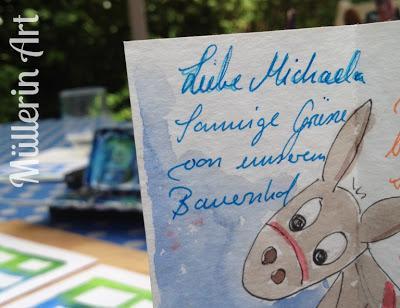 Müllerin Art
Liebe Michaela
sonnige Grüsse
von unserem
Bauernhof